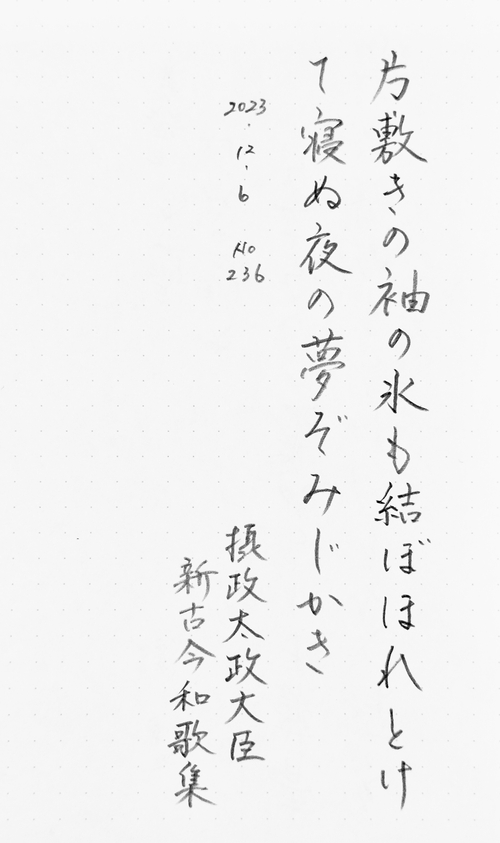 片敷きの袖の氷も結ぼほれとけ
て寝ぬ夜の夢ぞみじかき
2023.12.6 No236
摂政太政大臣
新古今和歌集